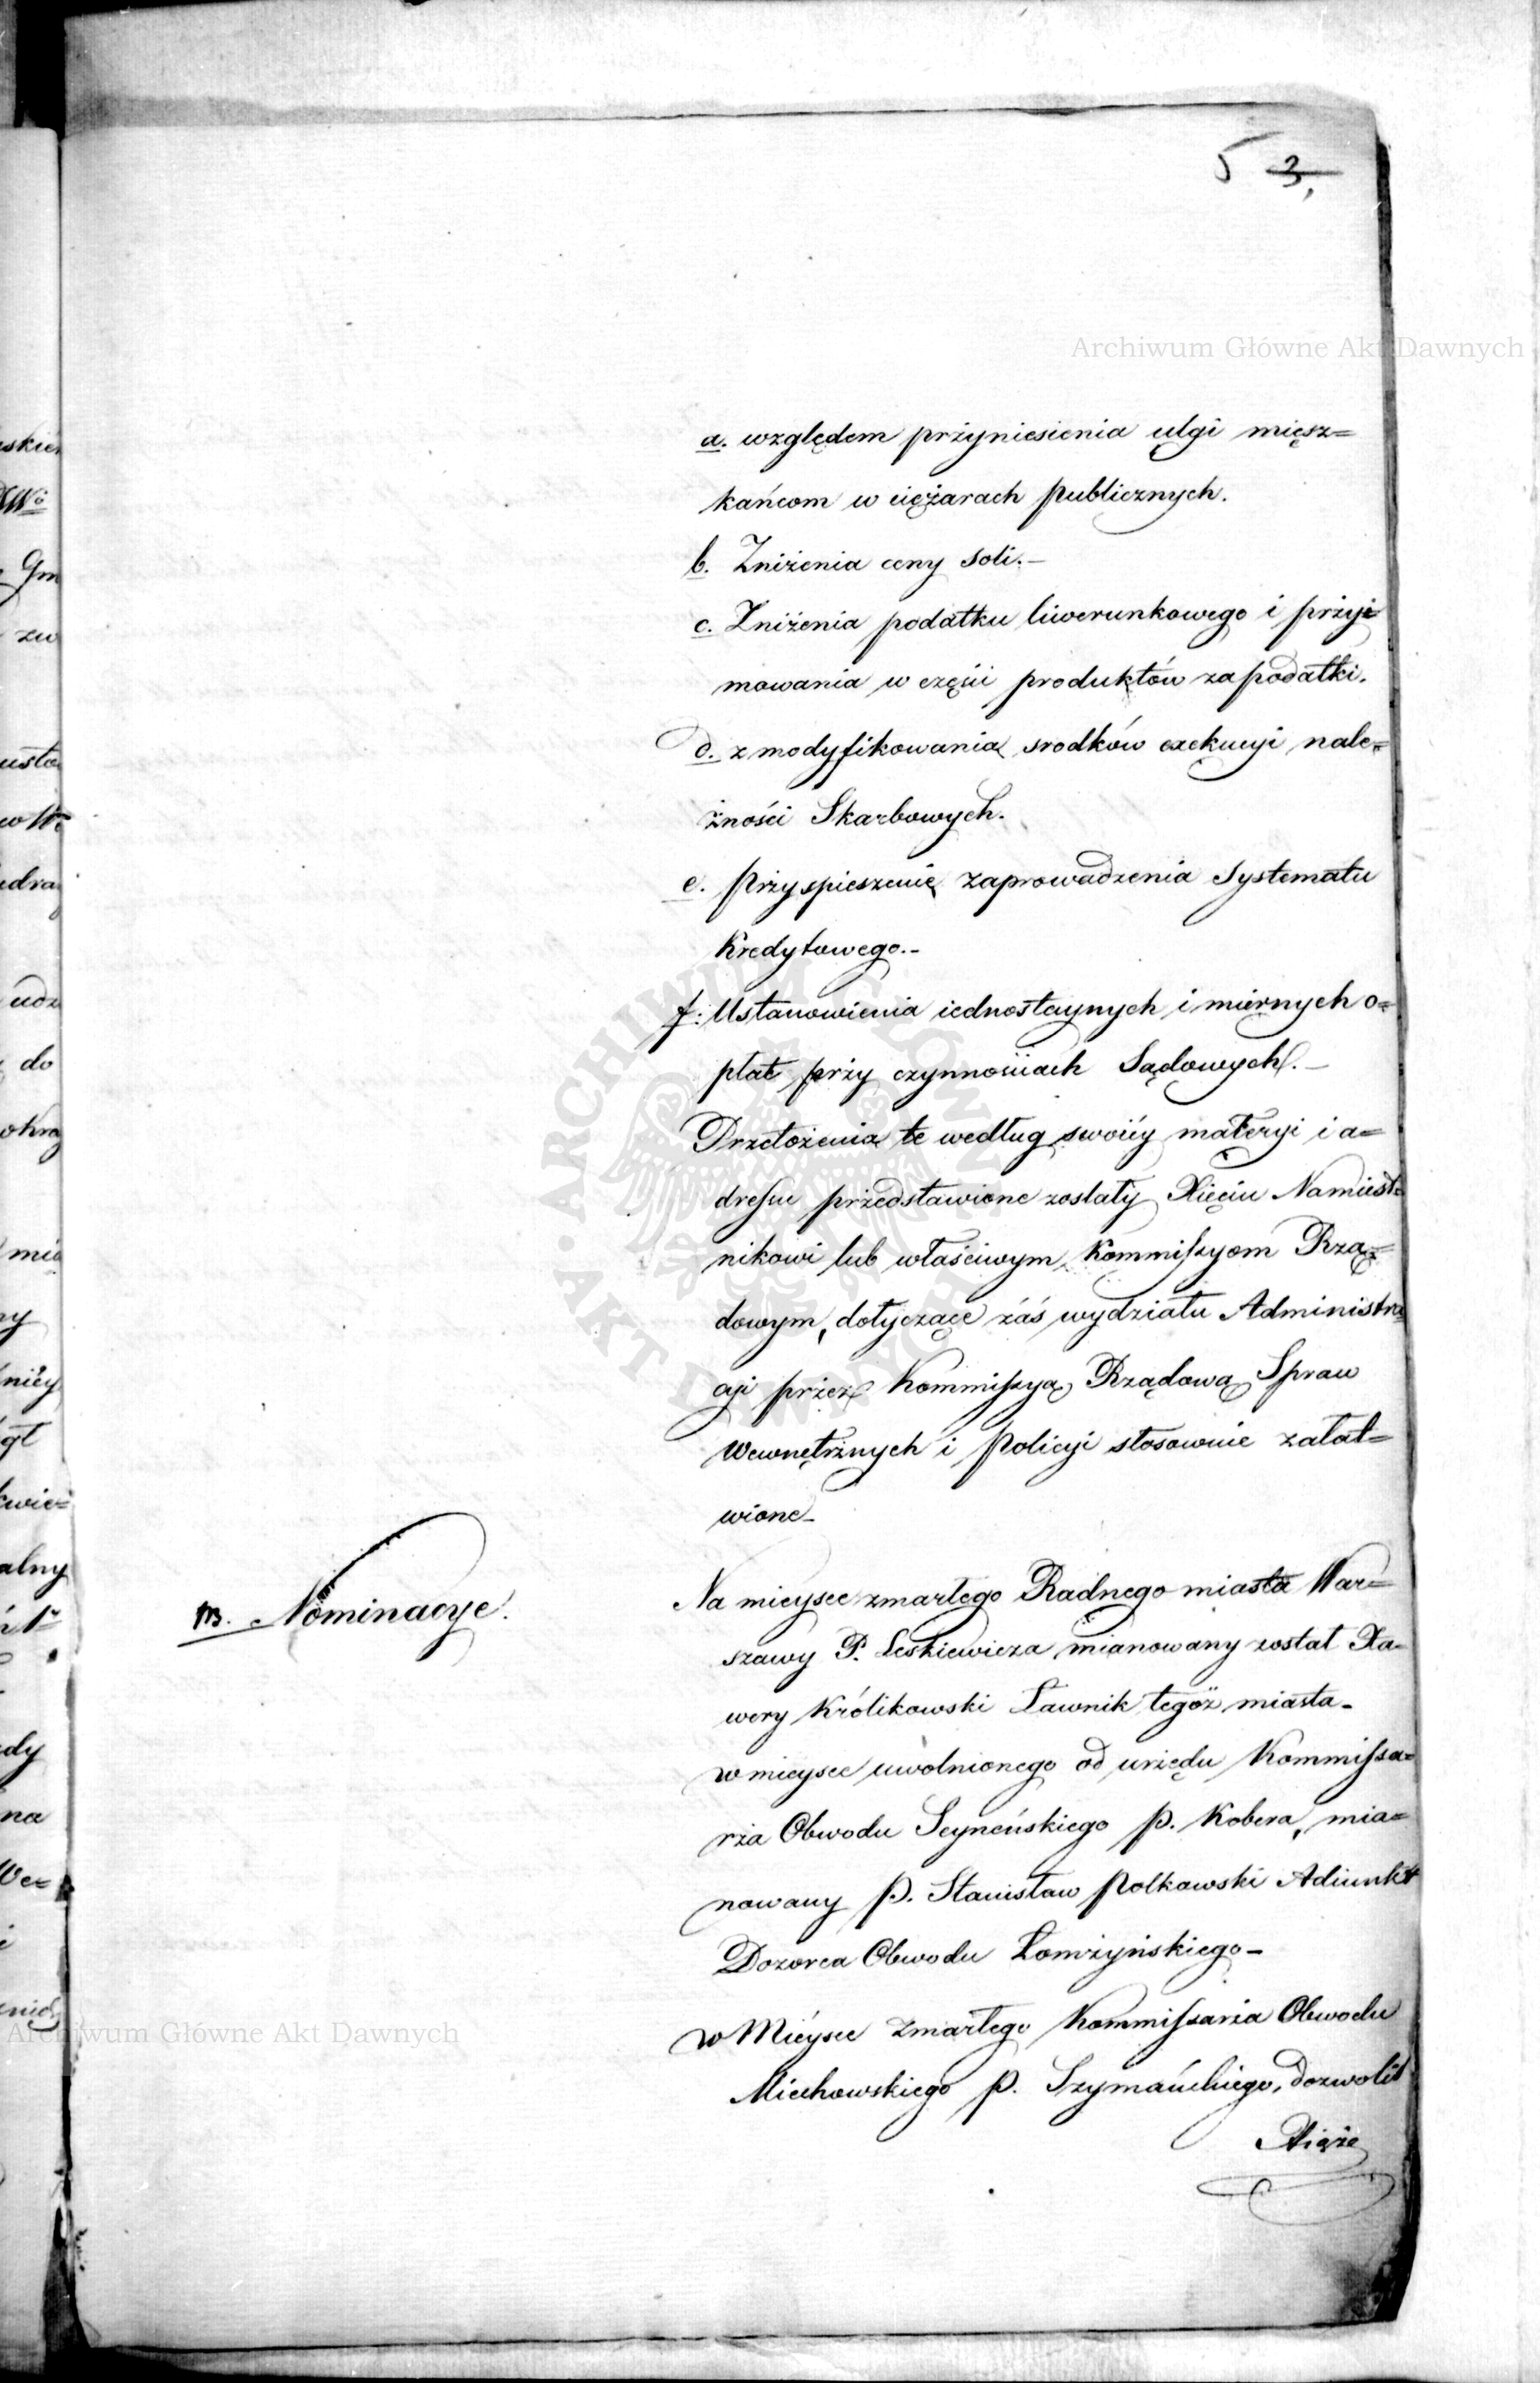 5 3,
Archiwum Główne Akt Dawnych
a. względem przyniesienia ulgi miesz=
kańcom w ciężarach publicznych.
b. Zniżenia ceny soli.–
c. Zniżenia podatku liwerunkowego i przyi=
mowania w części produktów za podatki.
d. zmodyfikowania srodków exekucyi nale=
żności Skarbowych.
e. przyspieszenie zaprowadzenia Systematu
Kredytowego.–
f: Ustanowienia iednostaynych i miernych o=
płat przy czynnościach Sądowych.–
Przełożenia te według swoiéy materyi i a=
dressu przedstawione zostały Xięciu Namiest=
nikowi lub właściwym Kommissyom Rzą=
dowym, dotyczące záś wydziału Administra
cyi przez Kommissyą Rządową Spraw
Wewnętrznych i Policyi stosownie załat=
wione–
m. Nominacye.
Na mieysce zmarłego Radnego miasta War=
szawy P. Leskiewicza mianowany został Xa=
wery Królikowski Ławnik tegoż miasta–
w mieysce uwolnionego od urzędu Kommissa=
rza Obwodu Seyneńskiego p. Kobera, mia=
nowany p. Stanisław Polkowski Adiunkt
Dozorca Obwodu Łomżyńskiego–
w Mieysce zmarłego Kommissarza Obwodu
Miechowskiego p. Szymańskiego, dozwolił
Xiąże
Archiwum Główne Akt Dawnych